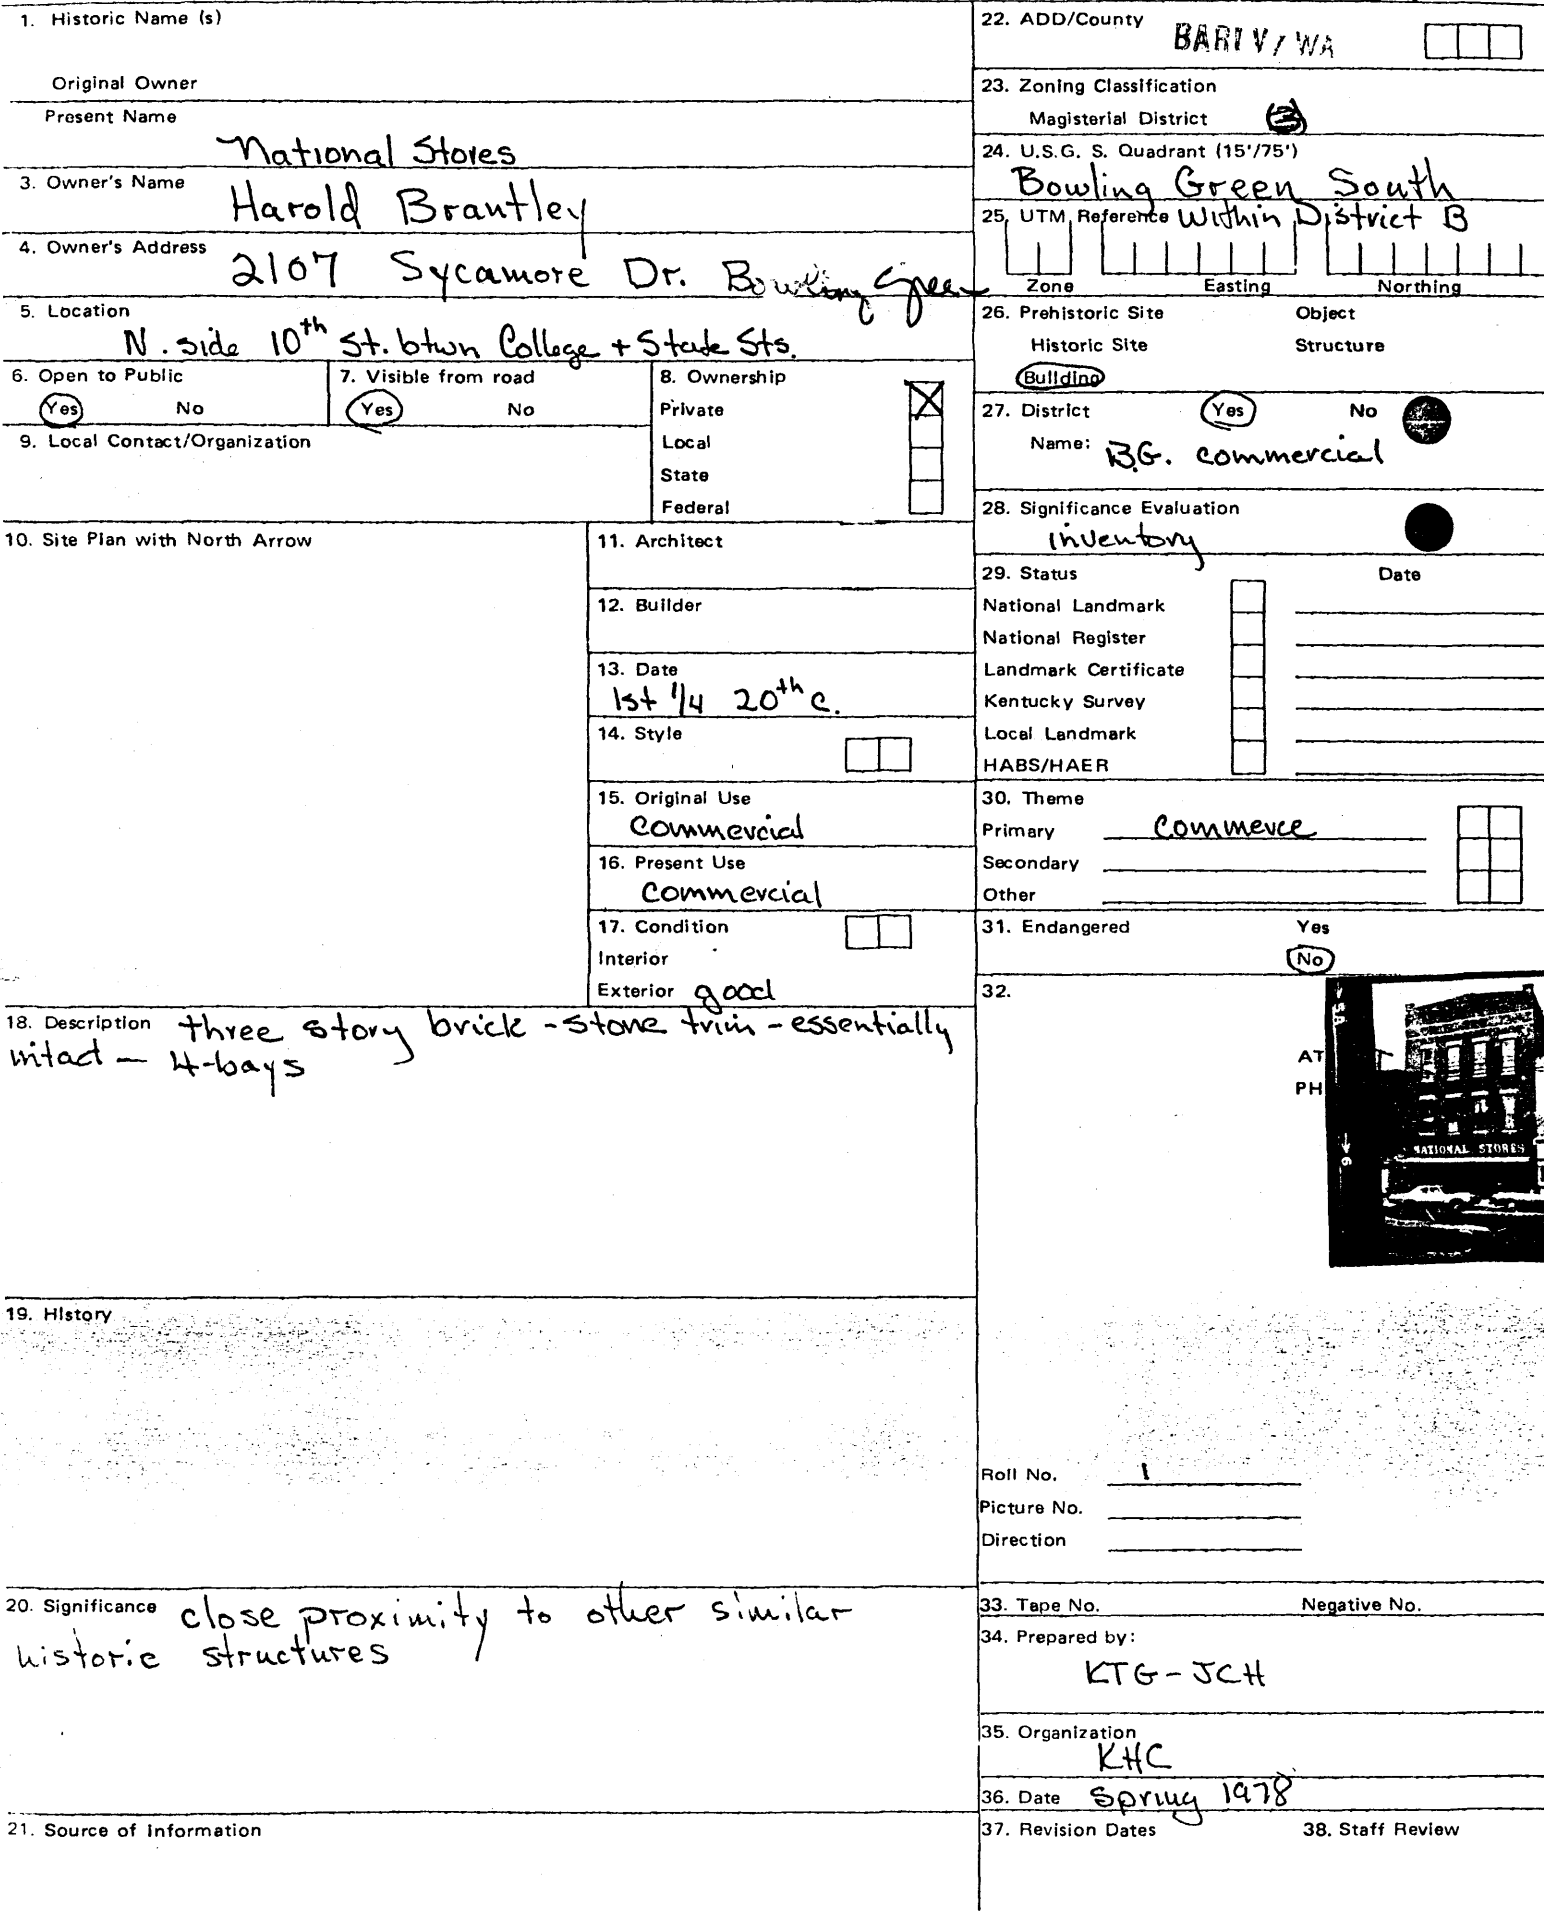 1. Historic Name (s)
Original Owner
Present Name
National Stores
3. Owner's Name
Harold Brantley
4. Owner's Address
2107 Sycamore Dr. Bowling Green
5. Location
N. side 10th St. btwn College + State Sts.
6. Open to Public
Yes No
7. Visible from road
Yes No
8. Ownership
Private
Local
State
Federal
9. Local Contact/Organization
10. Site Plan with North Arrow
11. Architect
12. Builder
13. Date
1st 1/4 20th c.
14. Style
15. Original Use
Commercial
16. Present Use
Commercial
17. Condition
Interior
Exterior good
18. Description three story brick - stone trim - essentially
intact — 4-bays
19. History
20. Significance close proximity to other similar
historic structures
21. Source of Information
22. ADD/County
Magisterial District
23. Zoning Classification
24. U.S.G. S. Quadrant (15'/75')
Bowling Green South
25. UTM Reference Within District B
Zone Easting Northing
26. Prehistoric Site Object
Historic Site Structure
Building
27. District Yes No
Name: B.G. commercial
28. Significance Evaluation
inventory
29. Status Date
National Landmark
National Register
Landmark Certificate
Kentucky Survey
Local Landmark
HABS/HAER
30. Theme
Primary Commerce
Secondary
Other
31. Endangered Yes
No
32.
AT
PH
SA
6
NATIONAL STORES
Roll No. 1
Picture No.
Direction
33. Tape No. Negative No.
34. Prepared by:
KTG - JCH
35. Organization
KHC
36. Date Spring 1978
37. Revision Dates 38. Staff Review